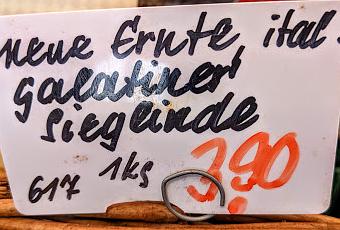 neue Ernte, ital.
Galatiner
Sieglinde
617 1kg 3,90